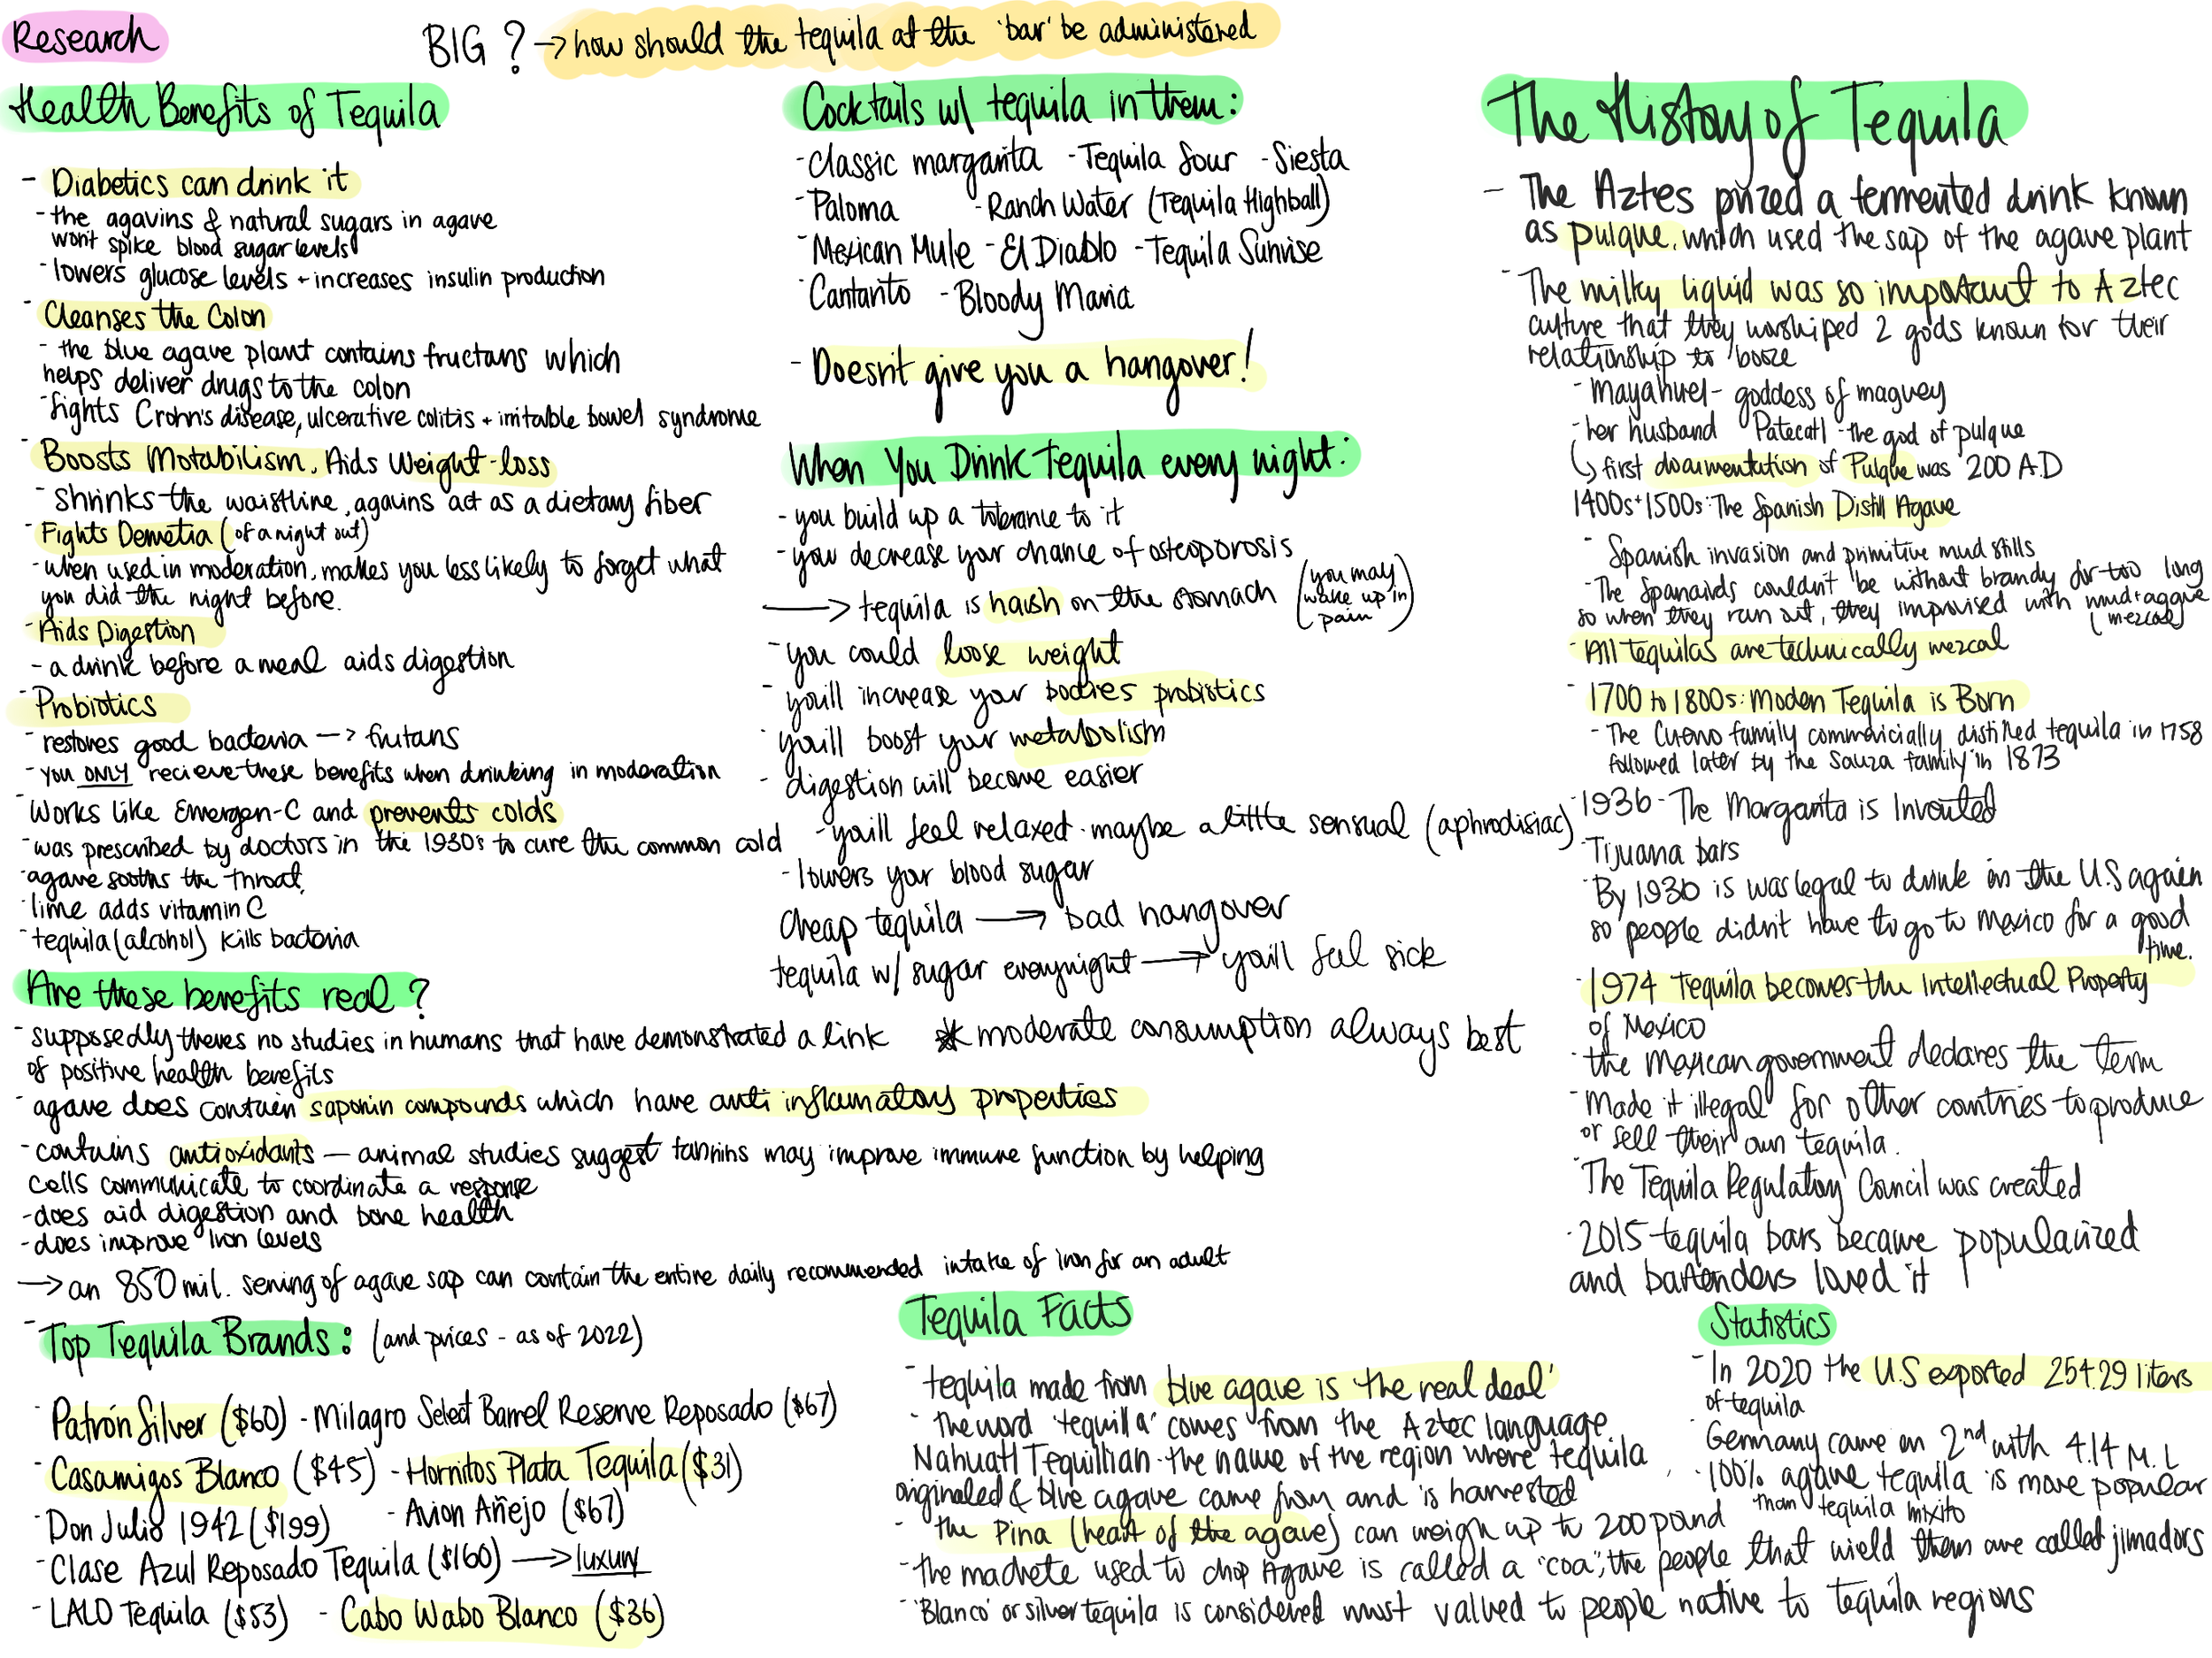 Research
BIG ? → how should the tequila at the 'bar' be administered
Health Benefits of Tequila
- Diabetics can drink it
- the agavins & natural sugars in agave
won't spike blood sugar levels
- lowers glucose levels + increases insulin production
- Cleanses the Colon
- the blue agave plant contains fructans which
helps deliver drugs to the colon
- fights Crohn's disease, ulcerative colitis + irritable bowel syndrome
- Boosts Motabilism, Aids Weight-loss
- shrinks the waistline, agavins act as a dietary fiber
- Fights Demetia (of a night out)
- when used in moderation, makes you less likely to forget what
you did the night before.
- Aids Digestion
- a drink before a meal aids digestion
- Probiotics
- restores good bacteria → frutans
- you ONLY recieve these benefits when drinking in moderation
- Works like Emergen-C and prevents colds
- was prescribed by doctors in the 1930's to cure the common cold
- agave sooths the throat,
- lime adds vitamin C
- tequila (alcohol) kills bacteria
Are these benefits real?
- supposedly theres no studies in humans that have demonstrated a link
of positive health benefits
- agave does contain saponin compounds which have anti inflamatory properties
- contains antioxidants — animal studies suggest tannins may improve immune function by helping
cells communicate to coordinate a response
- does aid digestion and bone health
- does improve iron levels
→ an 850 mil. serving of agave sap can contain the entire daily recommended intake of iron for an adult
- Top Tequila Brands: (and prices - as of 2022)
- Patrón Silver ($60) - Milagro Select Barrel Reserve Reposado ($67)
- Casamigos Blanco ($45) - Hornitos Plata Tequila ($31)
- Don Julio 1942 ($199) - Avion Añejo ($67)
- Clase Azul Reposado Tequila ($160) → luxury
- LALO Tequila ($53) - Cabo Wabo Blanco ($36)
Cocktails w/ tequila in them:
- Classic margarita - Tequila Sour - Siesta
- Paloma - Ranch Water (Tequila Highball)
- Mexican Mule - El Diablo - Tequila Sunrise
- Cantarito - Bloody Maria
- Doesn't give you a hangover!
When You Drink tequila every night:
- you build up a tolerance to it
- you decrease your chance of osteoporosis
→ tequila is harsh on the stomach (you may
wake up in
pain)
- you could loose weight
- you'll increase your bodies probiotics
- you'll boost your metabolism
- digestion will become easier
- you'll feel relaxed - maybe a little sensual (aphrodisiac)
- lowers your blood sugar
cheap tequila → bad hangover
tequila w/ sugar everynight → you'll feel sick
* moderate consumption always best
Tequila Facts
- tequila made from blue agave is 'the real deal'
- the word 'tequilla' comes from the Aztec language
Nahuatl Tequillian - the name of the region where tequila
originated & blue agave came from and is harvested
- the Pina (heart of the agave) can weigh up to 200 pound
- the machete used to chop Agave is called a "coa"; the people that wield them are called jimadors
- 'Blanco' or silver tequila is considered most valued to people native to tequila regions
The History of Tequila
- The Aztes prized a fermented drink known
as pulque, which used the sap of the agave plant
- The milky liquid was so important to Aztec
culture that they worshiped 2 gods known for their
relationship to booze
- Mayahuel - goddess of maguey
- her husband Patecatl - the god of pulque
↳ first documentation of Pulque was 200 A.D
1400s + 1500s: The Spanish Distill Agave
- Spanish invasion and primitive mud stills
- The Spanaids couldn't be without brandy for too long
so when they ran out, they improvised with mud + agave
(mezcal)
- All tequilas are technically mezcal
- 1700 to 1800s: Modern Tequila is Born
- The Cuervo family commericially distilled tequila in 1758
followed later by the Sauza family in 1873
- 1936 - The Margarita is Invented
- Tijuana bars
- By 1936 is was legal to drink in the U.S again
so people didn't have to go to Mexico for a good
time.
- 1974 Tequila becomes the Intellectual Property
of Mexico
- the Mexican government declares the term
- Made it illegal for other contries to produce
or sell their own tequila.
- The Tequila Regulatory Council was created
- 2015 - tequila bars became popularized
and bartenders loved it
Statistics
- In 2020 the U.S exported 254.29 liters
of tequila
- Germany came in 2nd with 4.14 M. L
- 100% agave tequila is more popular
than tequila mixito